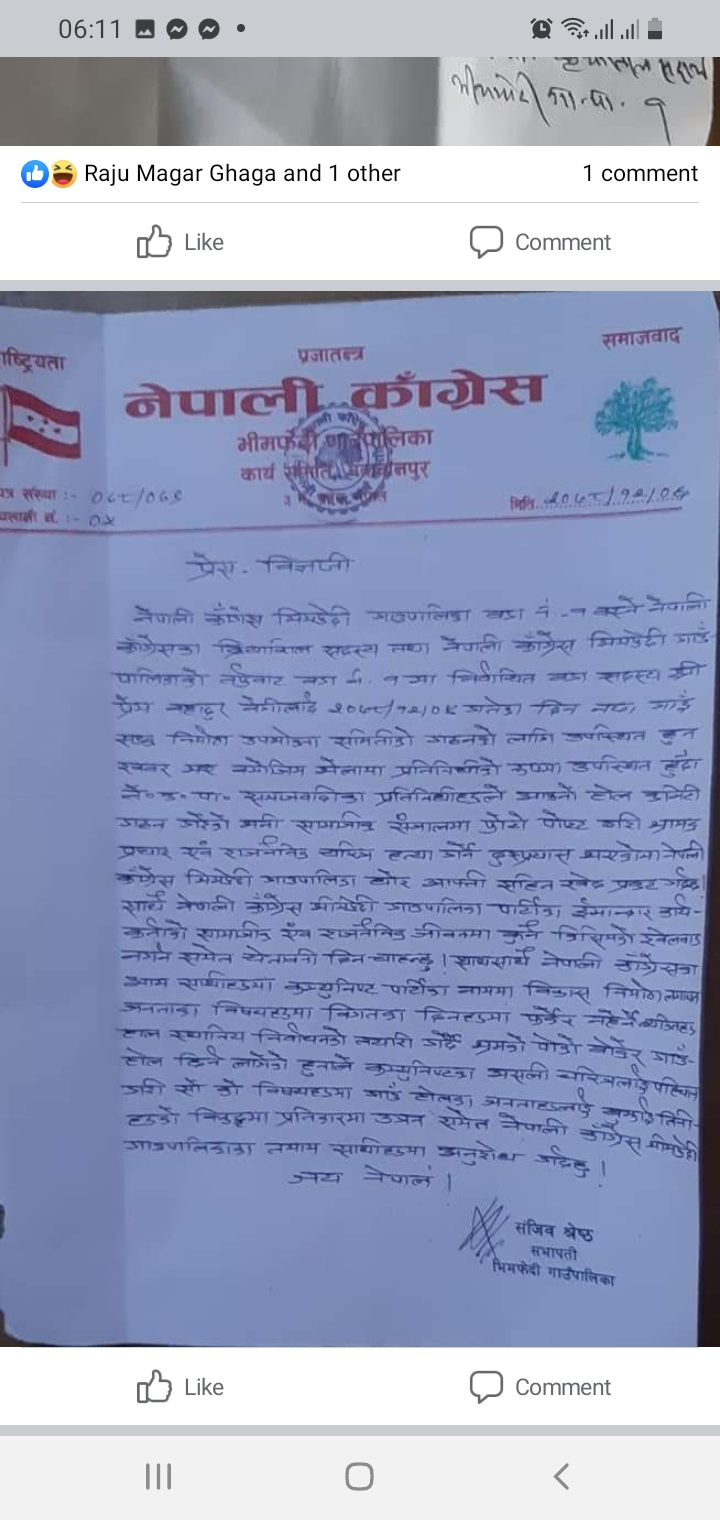 06:11
भीमफेदी गा.पा. १
Raju Magar Ghaga and 1 other
1 comment
Like
Comment
समाजवाद
प्रजातन्त्र
ाष्ट्रियता
नेपाली काँग्रेस
भीमफेदी गाउँपालिका
कार्य समिति, मकवानपुर
पत्र संख्या :- ०७८/०७९
चलानी नं. :- ०५
मिति
प्रेस - विज्ञप्ती
नेपाली काँग्रेस भिमफेदी गाउपालिका वडा नं. -१ बस्ने नेपाली
काँग्रेसका क्रियाशिल सदस्य तथा नेपाली काँग्रेस भिमफेदी गाउँ-
पालिकाको तर्फबाट वडा नं. १ मा निर्वाचित वडा सदस्य श्री
प्रेम बहादुर लाई गतेका दिन
निर्माण उपभोक्ता समितिको गठनको लागि उपस्थित हुन
खबर प्रतिनिधीको रुपमा उपस्थित हुँदा
ने॰क॰पा॰ समाजवादीका प्रतिनिधीहरुले आफ्नो टोल कमिटी
गठन गरेको भनी सामाजीक संजालमा फोटो पोष्ट गरि भ्रामक
प्रचार एवं राजनैतिक चरित्र हत्या गर्ने दुस्प्रयास नेपाली
काँग्रेस भिमफेदी गाउपालिका घोर आपत्ती सहित खेद प्रकट गर्दछ।
साथै नेपाली काँग्रेस भीमफेदी गाउपालिका पार्टीका ईमान्दार कार्य-
कर्ताको सामाजीक एंव राजनैतिक जीवनमा कुनै किसिमको खेलवाड
नगर्न समेत चेतावनी दिन चाहन्छु। साथसाथै नेपाली काँग्रेसका
आम साथीहरुमा कम्युनिष्ट पार्टीका नाममा विकास निर्माण
जनताका विषयहरुमा विगतका दिनहरुमा फर्केर नहेर्ने
हाल स्थानिय निर्वाचनको तयारी गर्दै भ्रमको पोको बोकेर गाउँ-
टोल हिन लागेको हुनाले कम्युनिष्टका असली चरित्रलाई पहिचान
गरि सो को विषयहरुमा गाउँ टोलका जनताहरुलाई तिनी-
हरुको विरुद्धमा प्रतिकारमा उत्रन समेत नेपाली काँग्रेस भीमफेदी
गाउपालिकाका तमाम साथीहरुमा अनुरोध गर्दछु।
जय नेपाल।
संजिव श्रेष्ठ
सभापती
भिमफेदी गाउँपालिका
Like
Comment